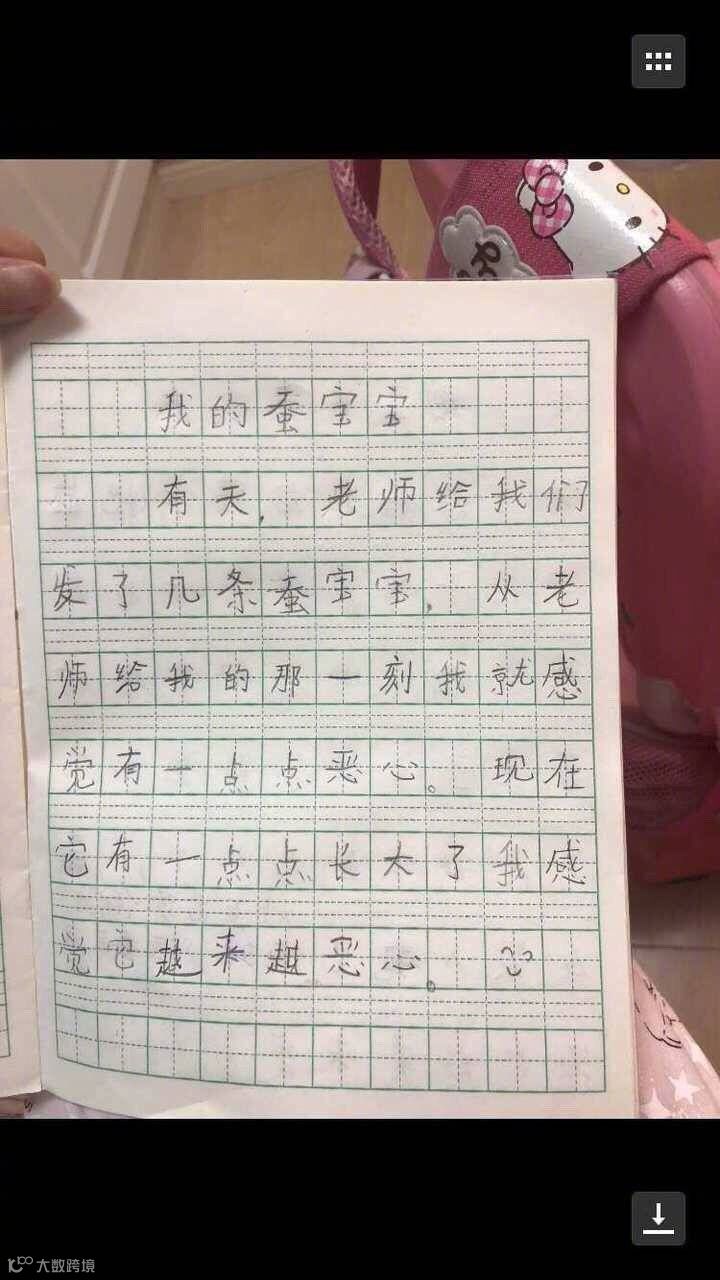 我的蚕宝宝
有天，老师给我们
发了几条蚕宝宝，从老
师给我的那一刻我就感
觉有一点点恶心。现在
它有一点点长大了我感
觉它越来越恶心。
大数跨境